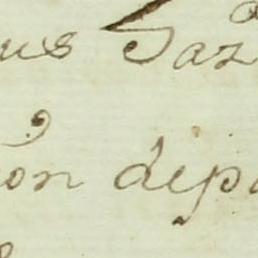 us Saz
on depo